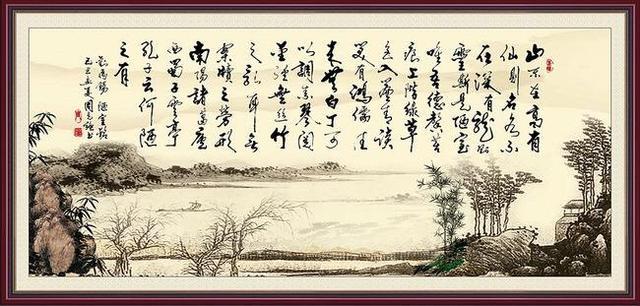 山不在高有
仙則名水不
在深有龍則
靈斯是陋室
唯吾德馨苔
痕上階綠草
色入簾青談
笑有鴻儒往
來無白丁可
以調素琴閱
金經無絲竹
之亂耳無
案牘之勞形
南陽諸葛廬
西蜀子雲亭
孔子云何陋
之有
劉禹錫陋室銘
己丑